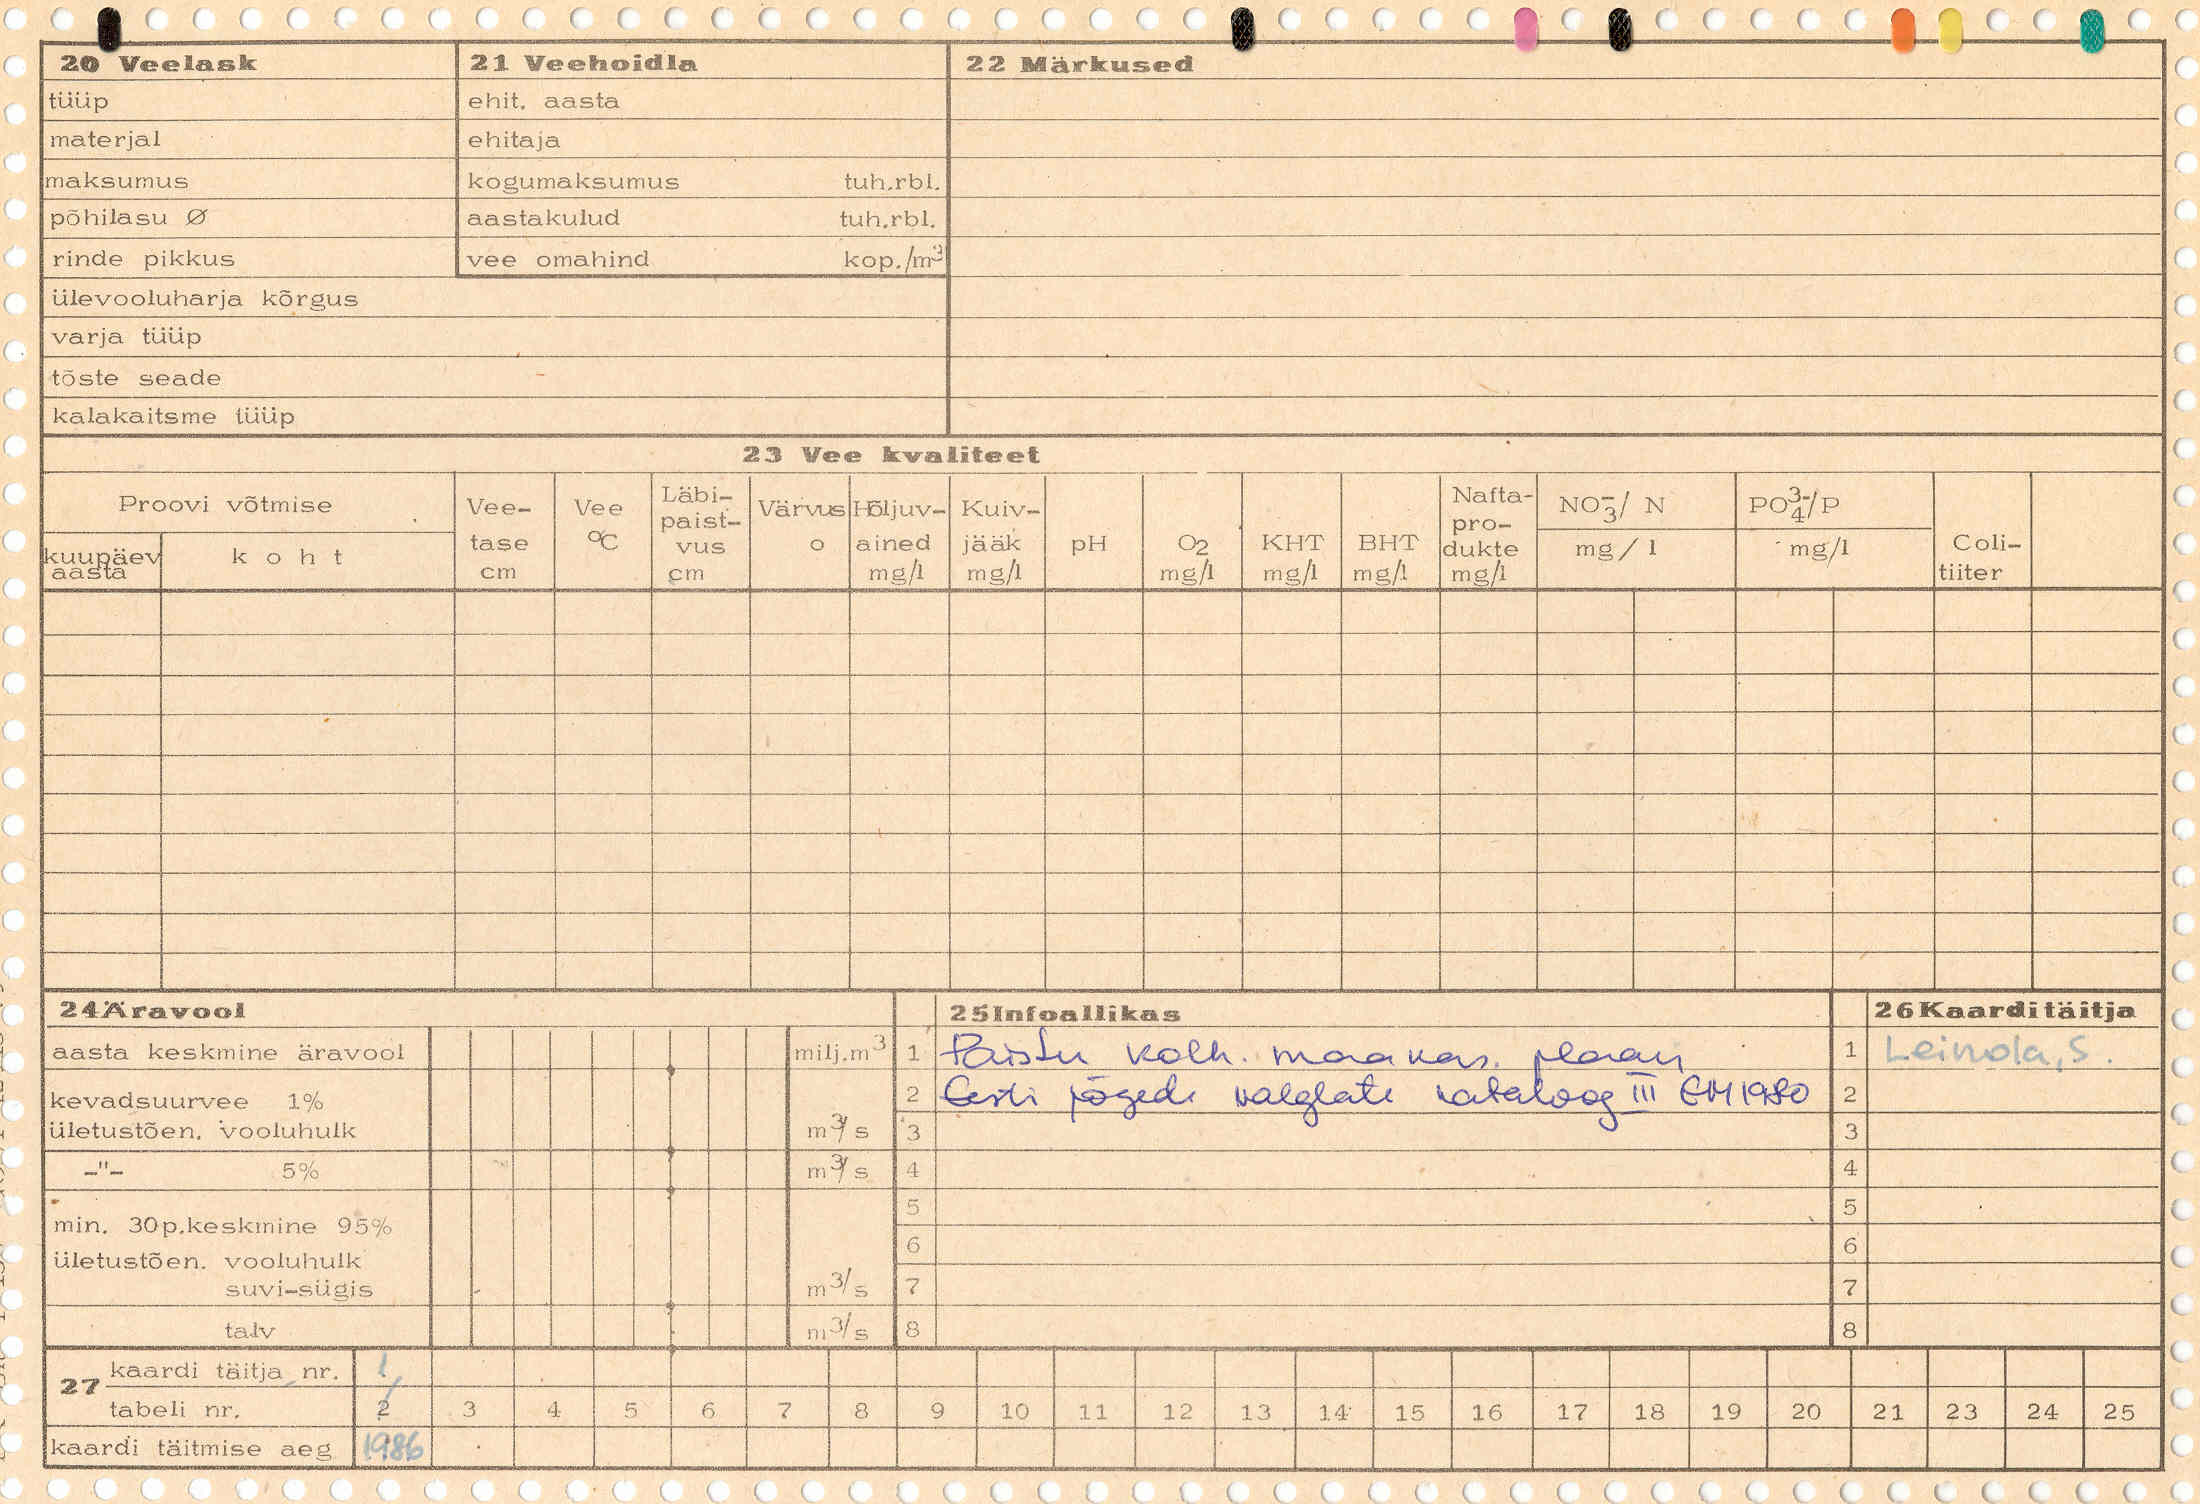 20 Veelask
tüüp
materjal
maksumus
põhilasu Ø
rinde pikkus
ülevooluharja kõrgus
varja tüüp
tõste seade
kalakaitsme tüüp
21 Veehoidla
ehit. aasta
ehitaja
kogumaksumus tuh.rbl.
aastakulud tuh.rbl.
vee omahind kop./m³
22 Märkused
23 Vee kvaliteet
Proovi võtmise
kuupäev aasta
koht
Vee-
tase
cm
Vee
°C
Läbi-
paist-
vus
cm
Värvus
o
Hõljuv-
ained
mg/l
Kuiv-
jääk
mg/l
pH
O₂
mg/l
KHT
mg/l
BHT
mg/l
Nafta-
pro-
dukte
mg/l
NO₃⁻/ N
mg/l
PO₄³⁻/P
mg/l
Coli-
tiiter
24 Äravool
aasta keskmine äravool milj.m³
kevadsuurvee 1%
ületustõen. vooluhulk m³/s
-"- 5% m³/s
min. 30p.keskmine 95%
ületustõen. vooluhulk
suvi-sügis m³/s
talv m³/s
25 Infoallikas
1 Paistu kolh. maakas. plaan
2 Eesti jõgede valglate kataloog III EM 1980
3
4
5
6
7
8
26 Kaarditäitja
1 Leinola, S.
2
3
4
5
6
7
8
27 kaardi täitja nr. 1
tabeli nr. 2 3 4 5 6 7 8 9 10 11 12 13 14 15 16 17 18 19 20 21 23 24 25
kaardi täitmise aeg 1986